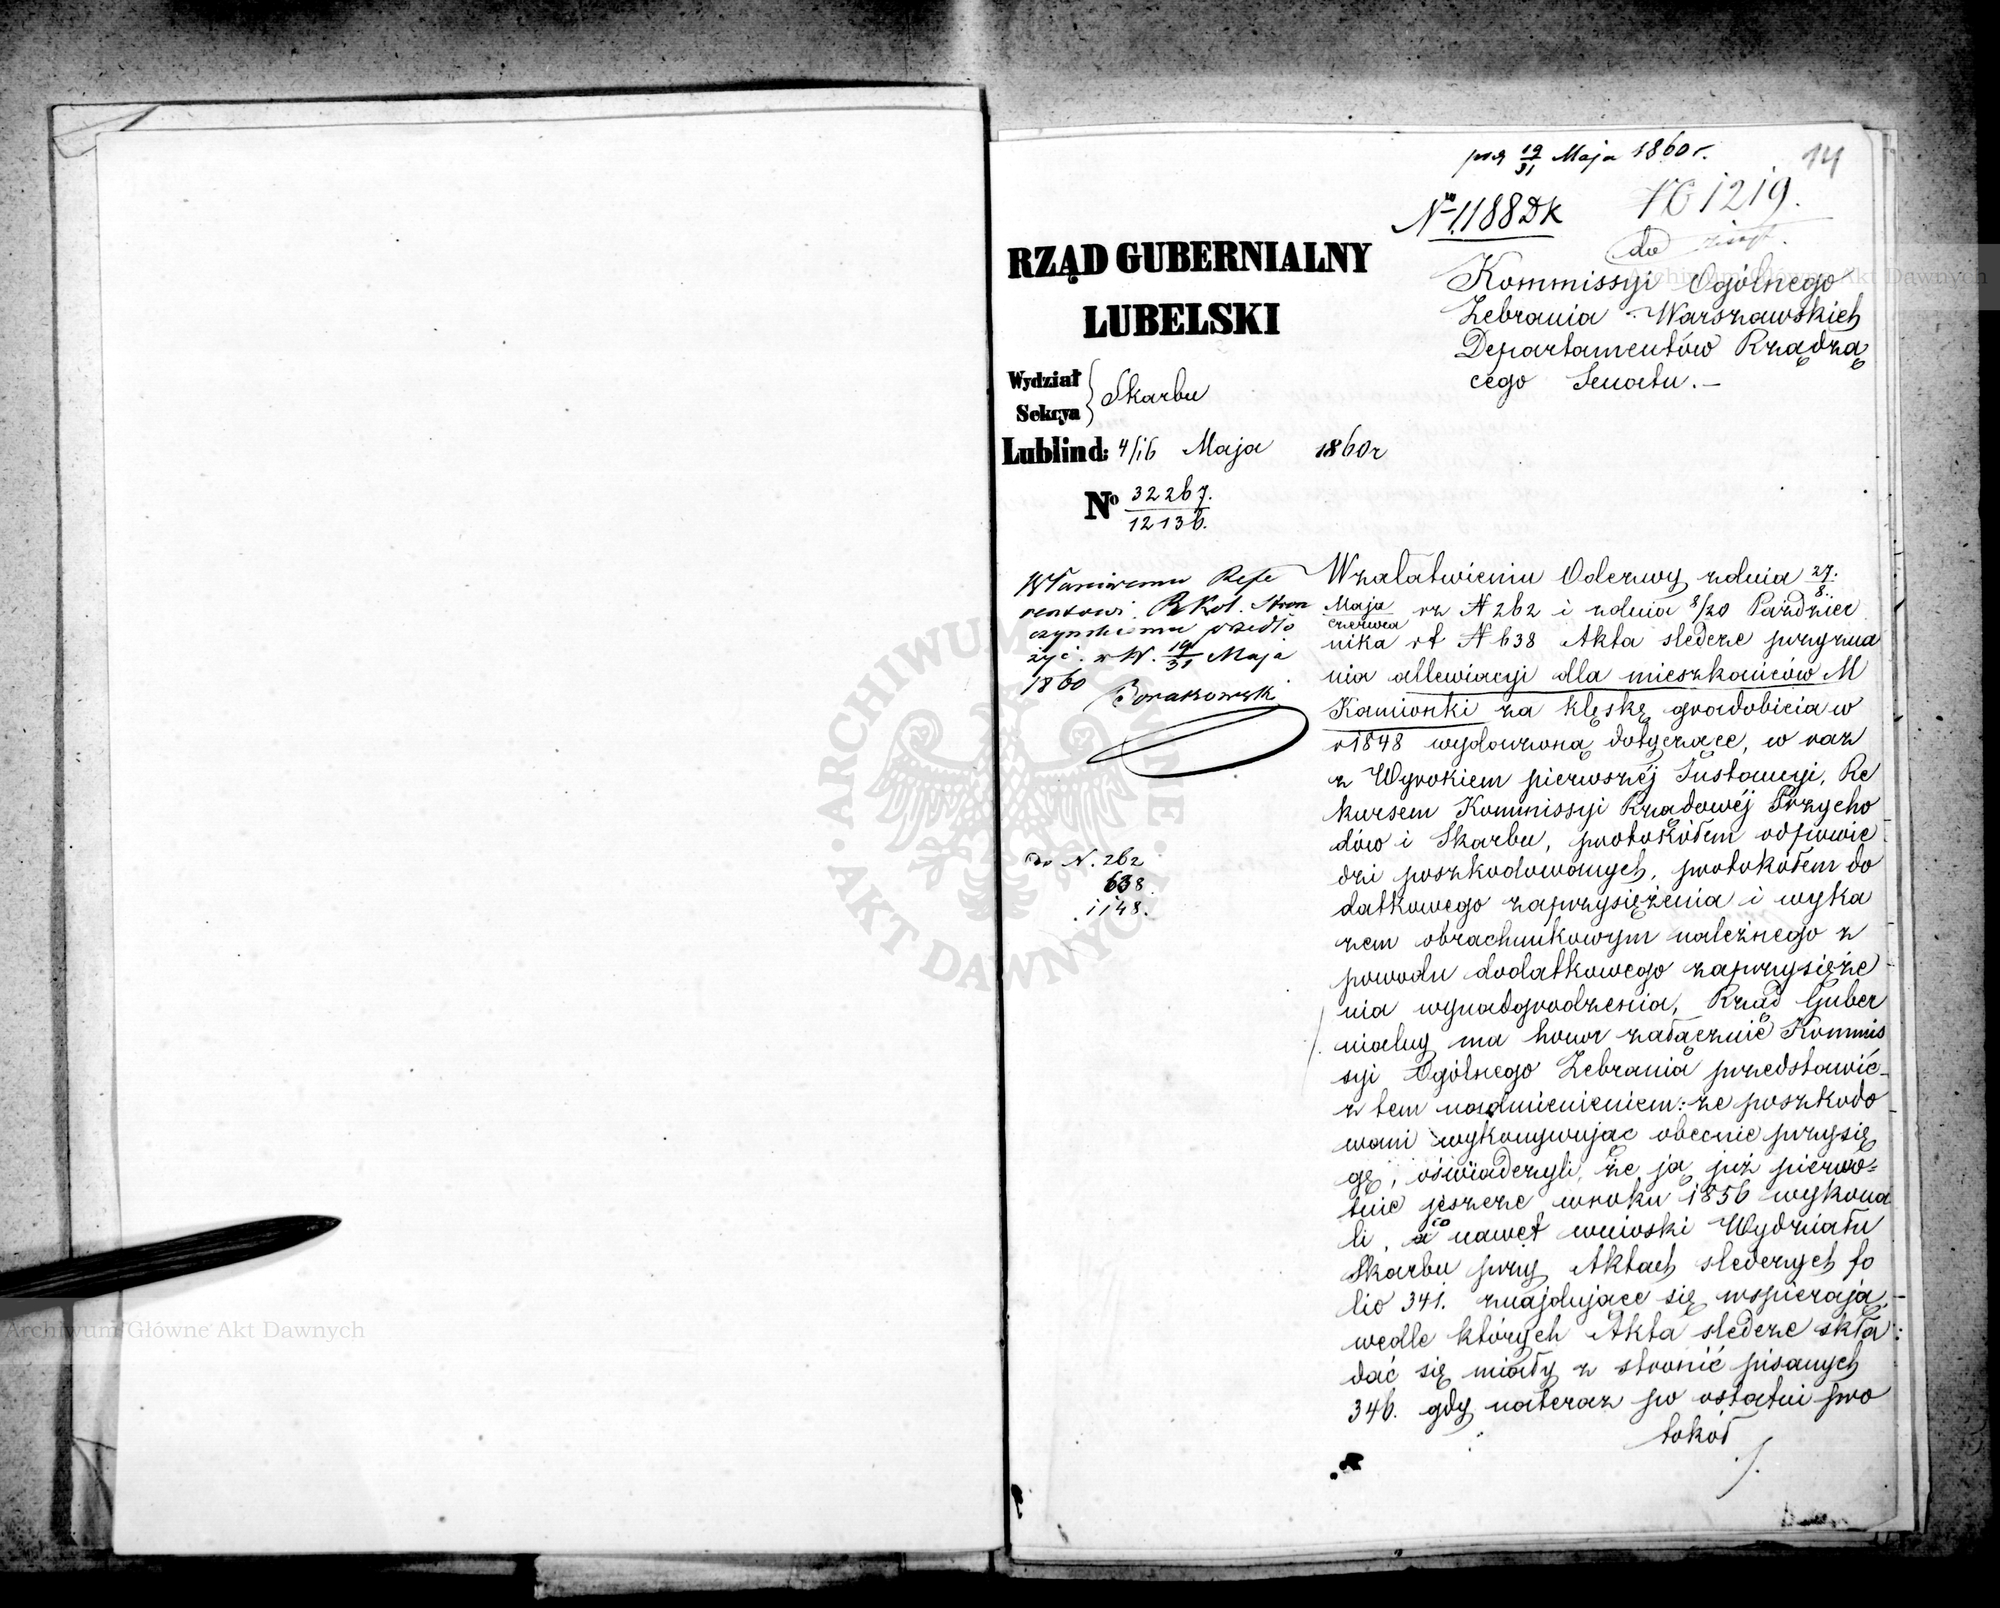 19/31 Maja 1860 r.
14
No 1188 DK
1219.
RZĄD GUBERNIALNY
LUBELSKI
do
Kommissyi Ogólnego
Zebrania Warszawskich
Departamentów Rządzą
cego Senatu. —
Wydział
Sekcya
Skarbu
Lublin d: 4/16 Maja 1860 r
No 32267./12136.
Właściwemu Refe
rentowi
czyńskiemu przedło
żyć. w W. 19/31 Maja
1860
do N. 262
638.
1148.
W załatwieniu Odezwy z dnia 27./8.
Maja/Czerwca rz N 262 i z dnia 8/20 Paździer
nika rt N 638 Akta śledcze przyzna
nia allewiacyi dla mieszkańców M
Kamionki za klęskę gradobicia w
r 1848 wydarzoną dotyczące, w raz
z Wyrokiem pierwszéj Instancyi, Re
kursem Kommissyi Rządowéj Przycho
dów i Skarbu, protokółem odpowie
dzi poszkodowanych, protokółem do
datkowego zaprzysiężenia i wyka
zem obrachunkowym należnego z
powodu dodatkowego zaprzysięże
nia wynadgrodzenia, Rząd Guber
nialny ma honor załącznie Kommis
syi Ogólnego Zebrania przedstawić
z tem nadmienieniem: że poszkodo
wani wykonywując obecnie przysię
gę, oświadczyli, że ją już pierwo=
tnie jeszcze w roku 1856 wykona
li, co nawet wnioski Wydziału
Skarbu przy Aktach śledczych fo
lio 341. znajdujące się wspierają,
wedle których Akta śledcze skła
dać się miały z stronic pisanych
346. gdy na teraz po ostatni pro
tokół
ARCHIWUM GŁÓWNE
AKT DAWNYCH
Archiwum Główne Akt Dawnych
Archiwum Główne Akt Dawnych